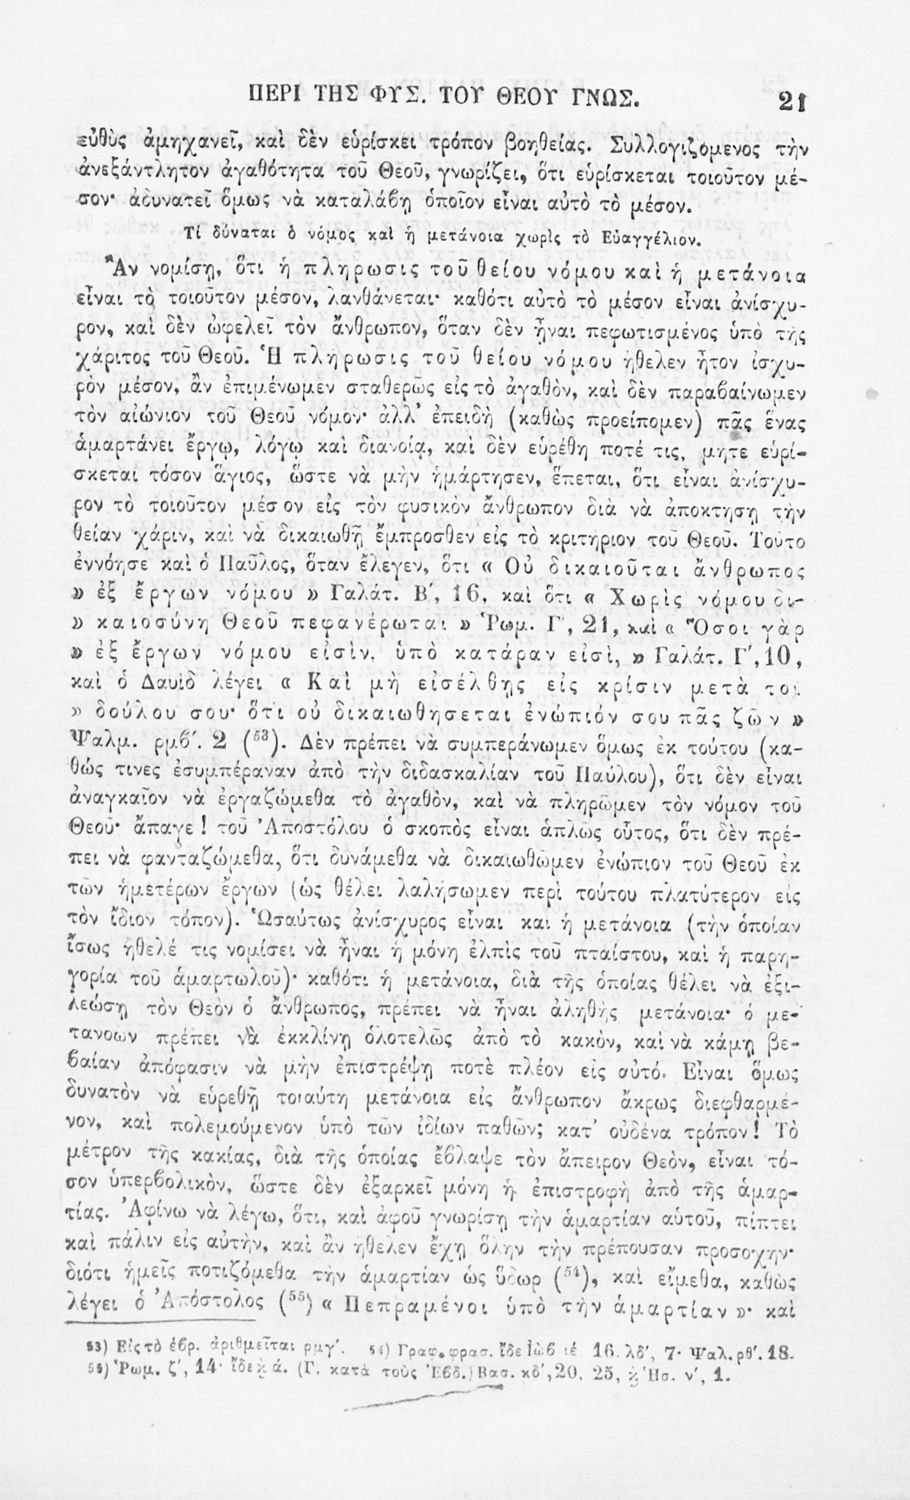 ΠΕΡΙ ΤΗΣ ΦΥΣ. ΤΟΥ ΘΕΟΥ ΓΝΩΣ. 21
εὐθὺς ἀμηχανεῖ, καὶ δὲν εὑρίσκει τρόπον βοηθείας. Συλλογιζόμενος τὴν
ἀνεξάντλητον ἀγαθότητα τοῦ Θεοῦ, γνωρίζει, ὅτι εὑρίσκεται τοιοῦτον μέ-
σον· ἀδυνατεῖ ὅμως νὰ καταλάβῃ ὁποῖον εἶναι αὐτὸ τὸ μέσον.
Τί δύναται ὁ νόμος καὶ ἡ μετάνοια χωρὶς τὸ Εὐαγγέλιον.
Ἂν νομίσῃ, ὅτι ἡ πλήρωσις τοῦ θείου νόμου καὶ ἡ μετάνοια
εἶναι τὸ τοιοῦτον μέσον, λανθάνεται· καθότι αὐτὸ τὸ μέσον εἶναι ἀνίσχυ-
ρον, καὶ δὲν ὠφελεῖ τὸν ἄνθρωπον, ὅταν δὲν ἦναι πεφωτισμένος ὑπὸ τῆς
χάριτος τοῦ Θεοῦ. Ἡ πλήρωσις τοῦ θείου νόμου ἤθελεν ἦτον ἰσχυ-
ρὸν μέσον, ἂν ἐπιμένωμεν σταθερῶς εἰς τὸ ἀγαθὸν, καὶ δὲν παραβαίνωμεν
τὸν αἰώνιον τοῦ Θεοῦ νόμον· ἀλλ' ἐπειδὴ (καθὼς προείπομεν) πᾶς ἕνας
ἁμαρτάνει ἔργῳ, λόγῳ καὶ διανοίᾳ, καὶ δὲν εὑρέθη ποτέ τις, μήτε εὑρί-
σκεται τόσον ἅγιος, ὥστε νὰ μὴν ἡμάρτησεν, ἕπεται, ὅτι εἶναι ἀνίσχυ-
ρον τὸ τοιοῦτον μέσον εἰς τὸν φυσικὸν ἄνθρωπον διὰ νὰ ἀποκτήσῃ τὴν
θείαν χάριν, καὶ νὰ δικαιωθῇ ἔμπροσθεν εἰς τὸ κριτήριον τοῦ Θεοῦ. Τοῦτο
ἐννόησε καὶ ὁ Παῦλος, ὅταν ἔλεγεν, ὅτι « Οὐ δικαιοῦται ἄνθρωπος
» ἐξ ἔργων νόμου » Γαλάτ. Β', 16, καὶ ὅτι « Χωρὶς νόμου δι-
» καιοσύνη Θεοῦ πεφανέρωται » Ῥωμ. Γ', 21, καὶ « Ὅσοι γὰρ
» ἐξ ἔργων νόμου εἰσὶν, ὑπὸ κατάραν εἰσὶ, » Γαλάτ. Γ', 10,
καὶ ὁ Δαυὶδ λέγει « Καὶ μὴ εἰσέλθῃς εἰς κρίσιν μετὰ τοῦ
» δούλου σου· ὅτι οὐ δικαιωθήσεται ἐνώπιόν σου πᾶς ζῶν »
Ψαλμ. ρμβ'. 2 (53). Δὲν πρέπει νὰ συμπεράνωμεν ὅμως ἐκ τούτου (κα-
θώς τινες ἐσυμπέραναν ἀπὸ τὴν διδασκαλίαν τοῦ Παύλου), ὅτι δὲν εἶναι
ἀναγκαῖον νὰ ἐργαζώμεθα τὸ ἀγαθὸν, καὶ νὰ πληρῶμεν τὸν νόμον τοῦ
Θεοῦ· ἄπαγε! τοῦ Ἀποστόλου ὁ σκοπὸς εἶναι ἁπλῶς οὗτος, ὅτι δὲν πρέ-
πει νὰ φανταζώμεθα, ὅτι δυνάμεθα νὰ δικαιωθῶμεν ἐνώπιον τοῦ Θεοῦ ἐκ
τῶν ἡμετέρων ἔργων (ὡς θέλει λαλήσωμεν περὶ τούτου πλατύτερον εἰς
τὸν ἴδιον τόπον). Ὡσαύτως ἀνίσχυρος εἶναι καὶ ἡ μετάνοια (τὴν ὁποίαν
ἴσως ἤθελέ τις νομίσει νὰ ἦναι ἡ μόνη ἐλπὶς τοῦ πταίστου, καὶ ἡ παρη-
γορία τοῦ ἁμαρτωλοῦ)· καθότι ἡ μετάνοια, διὰ τῆς ὁποίας θέλει νὰ ἐξι-
λεώσῃ τὸν Θεὸν ὁ ἄνθρωπος, πρέπει νὰ ἦναι ἀληθὴς μετάνοια· ὁ με-
τανοῶν πρέπει νὰ ἐκκλίνῃ ὁλοτελῶς ἀπὸ τὸ κακὸν, καὶ νὰ κάμῃ βε-
βαίαν ἀπόφασιν νὰ μὴν ἐπιστρέψῃ ποτὲ πλέον εἰς αὐτό. Εἶναι ὅμως
δυνατὸν νὰ εὑρεθῇ τοιαύτη μετάνοια εἰς ἄνθρωπον ἄκρως διεφθαρμέ-
νον, καὶ πολεμούμενον ὑπὸ τῶν ἰδίων παθῶν; κατ' οὐδένα τρόπον! Τὸ
μέτρον τῆς κακίας, διὰ τῆς ὁποίας ἔβλαψε τὸν ἄπειρον Θεὸν, εἶναι τό-
σον ὑπερβολικὸν, ὥστε δὲν ἐξαρκεῖ μόνη ἡ ἐπιστροφὴ ἀπὸ τῆς ἁμαρ-
τίας. Ἀφίνω νὰ λέγω, ὅτι, καὶ ἀφοῦ γνωρίσῃ τὴν ἁμαρτίαν αὑτοῦ, πίπτει
καὶ πάλιν εἰς αὐτὴν, καὶ ἂν ἤθελεν ἔχῃ ὅλην τὴν πρέπουσαν προσοχήν·
διότι ἡμεῖς ποτιζόμεθα τὴν ἁμαρτίαν ὡς ὕδωρ (54), καὶ εἴμεθα, καθὼς
λέγει ὁ Ἀπόστολος (55) « Πεπραμένοι ὑπὸ τὴν ἁμαρτίαν »· καὶ
53) Εἰς τὸ ἑβρ. ἀριθμεῖται ρμγ'. 54) Γραφ. φρασ. ἴδε Ἰὼβ ιέ 16. λδ', 7· Ψαλ. ρθ'. 18.
55) Ῥωμ. ζ', 14· ἴδε ϗ ά. (Γ. κατὰ τοὺς Ἑβδ.) Βασ. κδ', 20, 25, ϗ Ἡσ. ν', 1.